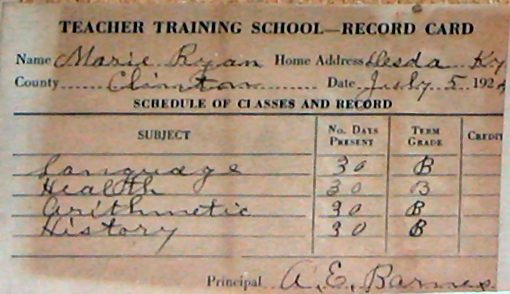 TEACHER TRAINING SCHOOL—RECORD CARD
Name Marie Ryan Home Address Desda Ky
County Clinton Date July 5 192
SCHEDULE OF CLASSES AND RECORD
SUBJECT No. DAYS PRESENT TERM GRADE CREDIT
Language 30 B
Health 30 B
Arithmetic 30 B
History 30 B
Principal A. E. Barnes